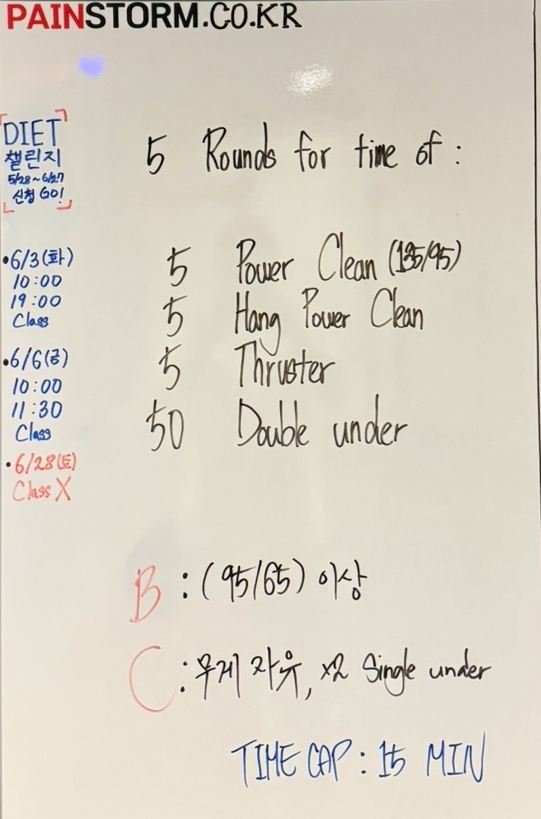 PAINSTORM.CO.KR
DIET
챌린지
5/28~6/27
신청 GO!
•6/3(화)
10:00
19:00
Class
•6/6(금)
10:00
11:30
Class
•6/28(토)
Class X
5 Rounds for time of :
5 Power Clean (135/95)
5 Hang Power Clean
5 Thruster
50 Double under
B : (95/65) 이상
C : 무게 자유, x2 Single under
TIME CAP : 15 MIN